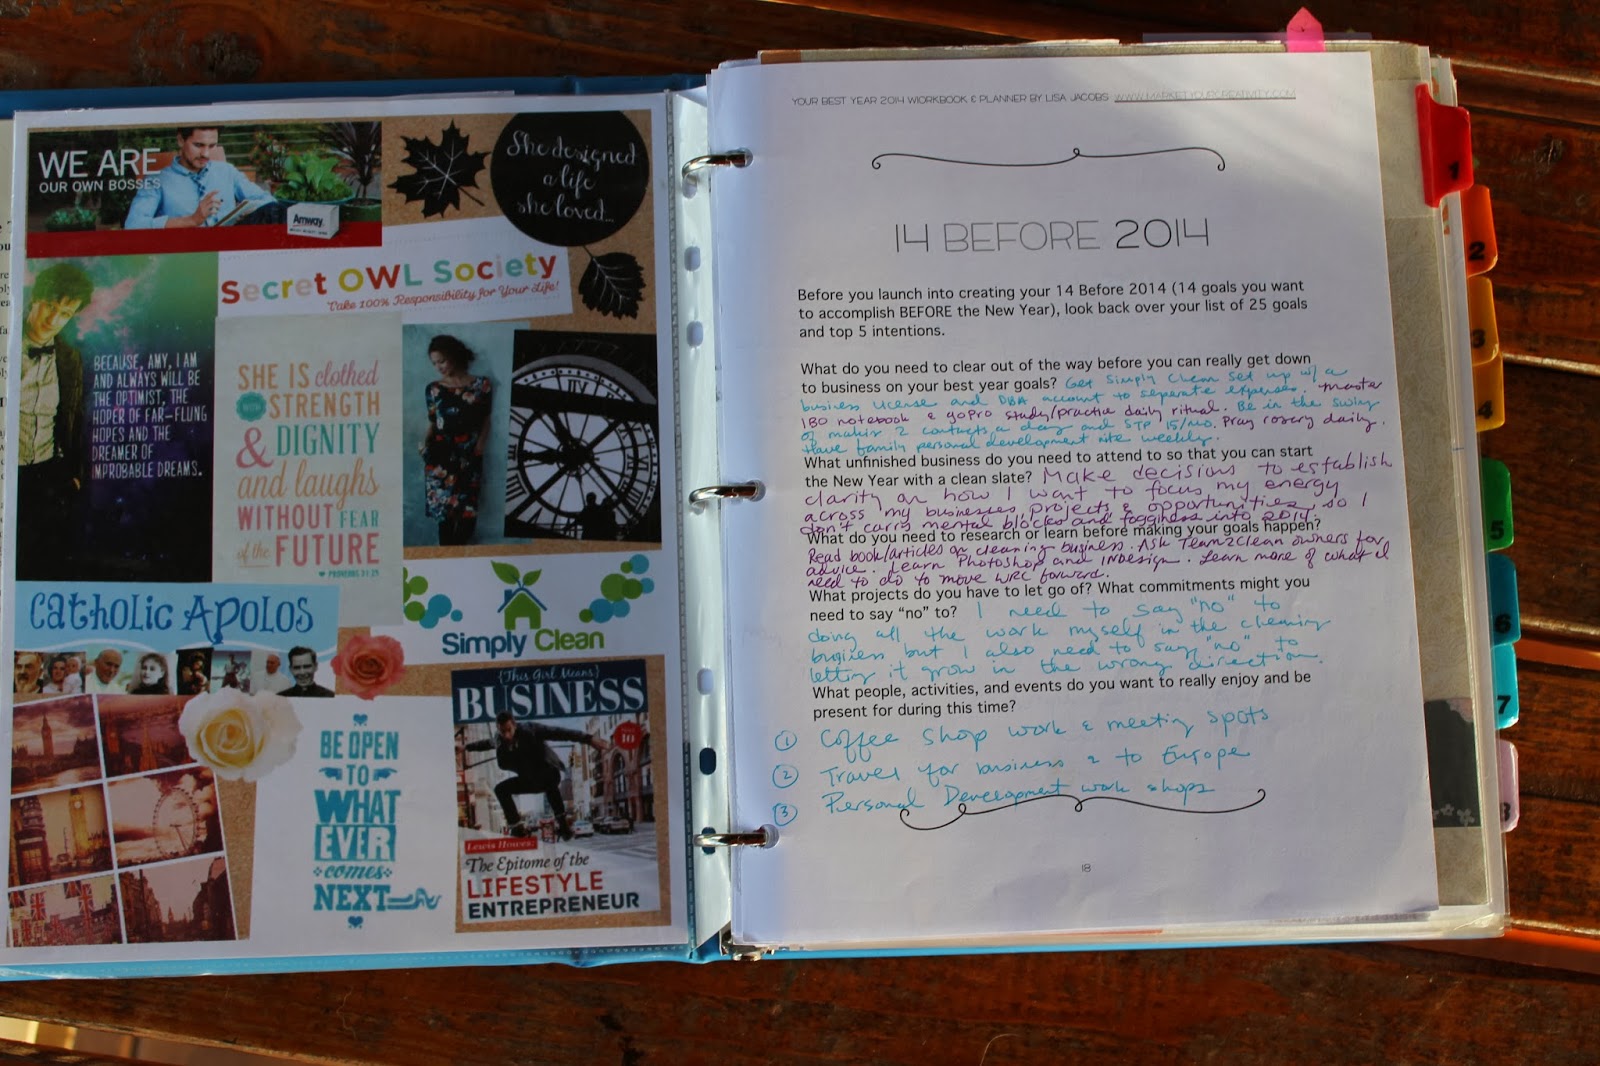 WE ARE
OUR OWN BOSSES
Amway
She designed
a life
she loved...
Secret OWL Society
Take 100% Responsibility for Your Life!
BECAUSE, AMY, I AM
AND ALWAYS WILL BE
THE OPTIMIST, THE
HOPER OF FAR-FLUNG
HOPES AND THE
DREAMER OF
IMPROBABLE DREAMS.
SHE IS clothed
WITH STRENGTH
& DIGNITY
and laughs
WITHOUT FEAR
of the FUTURE
PROVERBS 31:25
Catholic Apolos
Simply Clean
BE OPEN
TO
WHAT
EVER
comes
NEXT
{This Girl Means}
BUSINESS
10
Lewis Howes:
The Epitome of the
LIFESTYLE
ENTREPRENEUR
YOUR BEST YEAR 2014 WORKBOOK & PLANNER BY LISA JACOBS WWW.MARKETYOURCREATIVITY.COM
14 BEFORE 2014
Before you launch into creating your 14 Before 2014 (14 goals you want
to accomplish BEFORE the New Year), look back over your list of 25 goals
and top 5 intentions.
What do you need to clear out of the way before you can really get down
to business on your best year goals? Get Simply Clean set up w/ a
business license and DBA account to separate expenses. Master
IBO notebook & goPro study/practice daily ritual. Be in the swing
of making 2 contacts a day and STP 15/mo. Pray rosary daily.
Have family personal development nite weekly.
What unfinished business do you need to attend to so that you can start
the New Year with a clean slate? Make decisions to establish
clarity on how I want to focus my energy
across my businesses, projects & opportunities so I
don't carry mental blocks and fogginess into 2014.
What do you need to research or learn before making your goals happen?
Read book/articles on cleaning business. Ask Team2Clean owners for
advice. Learn Photoshop and InDesign. Learn more of what I
need to do to move WRC forward.
What projects do you have to let go of? What commitments might you
need to say “no” to? I need to say "no" to
doing all the work myself in the cleaning
business but I also need to say "no" to
letting it grow in the wrong direction.
What people, activities, and events do you want to really enjoy and be
present for during this time?
① Coffee shop work & meeting spots
② Travel for business & to Europe
③ Personal Development work shops
18
1
2
3
4
5
6
7
8